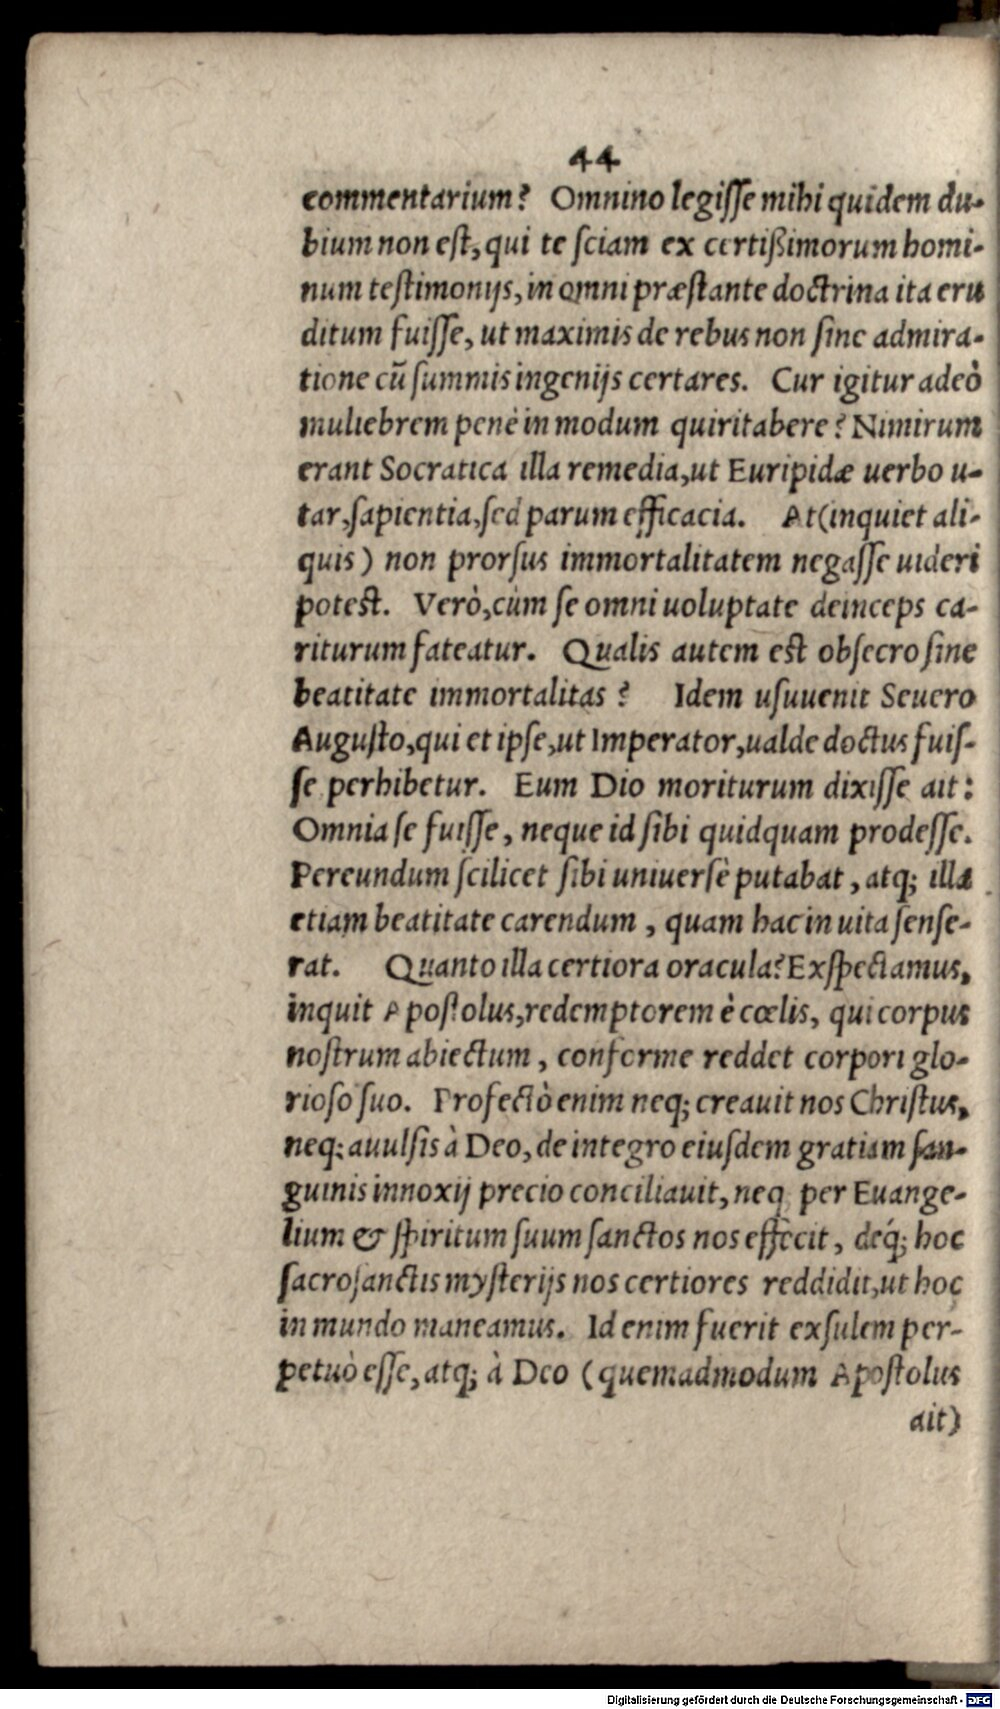 44
commentarium? Omnino legiſſe mihi quidem du-
bium non eſt, qui te ſciam ex certißimorum homi-
num teſtimonijs, in omni præſtante doctrina ita eru
ditum fuiſſe, ut maximis de rebus non ſine admira-
tione cū ſummis ingenijs certares. Cur igitur adeò
muliebrem penè in modum quiritabere? Nimirum
erant Socratica illa remedia, ut Euripidæ uerbo u-
tar, ſapientia, ſed parum efficacia. At (inquiet ali-
quis) non prorſus immortalitatem negaſſe uideri
poteſt. Verò, cùm ſe omni uoluptate deinceps ca-
riturum fateatur. Qualis autem eſt obſecro ſine
beatitate immortalitas? Idem uſuuenit Seuero
Auguſto, qui et ipſe, ut Imperator, ualde doctus fuiſ-
ſe perhibetur. Eum Dio moriturum dixiſſe ait:
Omnia ſe fuiſſe, neque id ſibi quidquam prodeſſe.
Pereundum ſcilicet ſibi uniuerſè putabat, atq; illa
etiam beatitate carendum, quam hac in uita ſenſe-
rat. Quanto illa certiora oracula? Exſpectamus,
inquit Apoſtolus, redemptorem è cœlis, qui corpus
noſtrum abiectum, conforme reddet corpori glo-
rioſo ſuo. Profectò enim neq; creauit nos Chriſtus,
neq; auulſis à Deo, de integro eiuſdem gratiam ſan-
guinis innoxij precio conciliauit, neq; per Euange-
lium & ſpiritum ſuum ſanctos nos effecit, deq́; hoc
ſacroſanctis myſterijs nos certiores reddidit, ut hoc
in mundo maneamus. Id enim fuerit exſulem per-
petuò eſſe, atq; à Deo (quemadmodum Apoſtolus
ait)
Digitalisierung gefördert durch die Deutsche Forschungsgemeinschaft - DFG